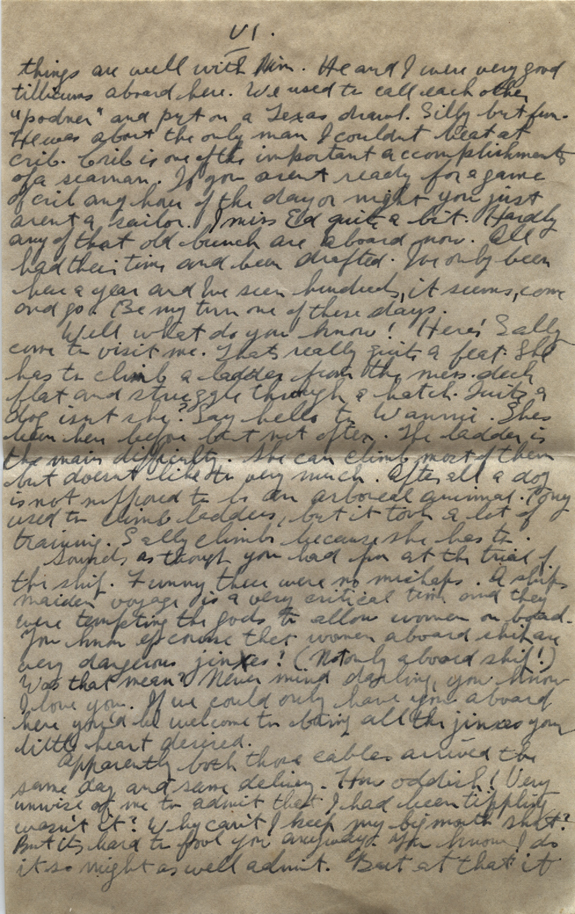 VI.
things are well with him. He and I were very good
tillicums aboard here. We used to call each other
"podner" and put on a Texas drawl. Silly but fun.
He was about the only man I couldn't beat at
crib. Crib is one of the important accomplishments
of a seaman. If you aren't ready for a game
of crib any hour of the day or night you just
aren't a sailor. I miss Ed quite a bit. Hardly
any of that old bunch are aboard now. All
had their time and been drafted. I've only been
here a year and I've seen hundreds, it seems, come
and go. Be my turn one of these days.
Well what do you know! Here's Sally
come to visit me. That's really quite a feat. She
has to climb a ladder from the mess deck
flat and struggle through a hatch. Quite a
dog isn't she? Say hello to Wannie. She's
been here before but not often. The ladder is
the main difficulty. She can climb most of them
but doesn't like to very much. After all a dog
is not supposed to be an arboreal animal. Tony
used to climb ladders, but it took a lot of
training. Sally climbs because she has to.
Sounds as though you had fun at the trial of
the ship. Funny there were no mishaps. A ships
maiden voyage is a very critical time and they
were tempting the gods to allow women on board.
You know of course that women aboard ship are
very dangerous jinxes! (Not only aboard ship!)
Was that mean? Never mind darling, you know
I love you. If we could only have you aboard
here you'd be welcome to bring all the jinxes your
little heart desired.
Apparently both those cables arrived the
same day and same delivery. How oddish! Very
unwise of me to admit that I had been tippling
wasn't it? Why can't I keep my big mouth shut?
But its hard to fool you anyways. You know I do
it so might as well admit. But at that it